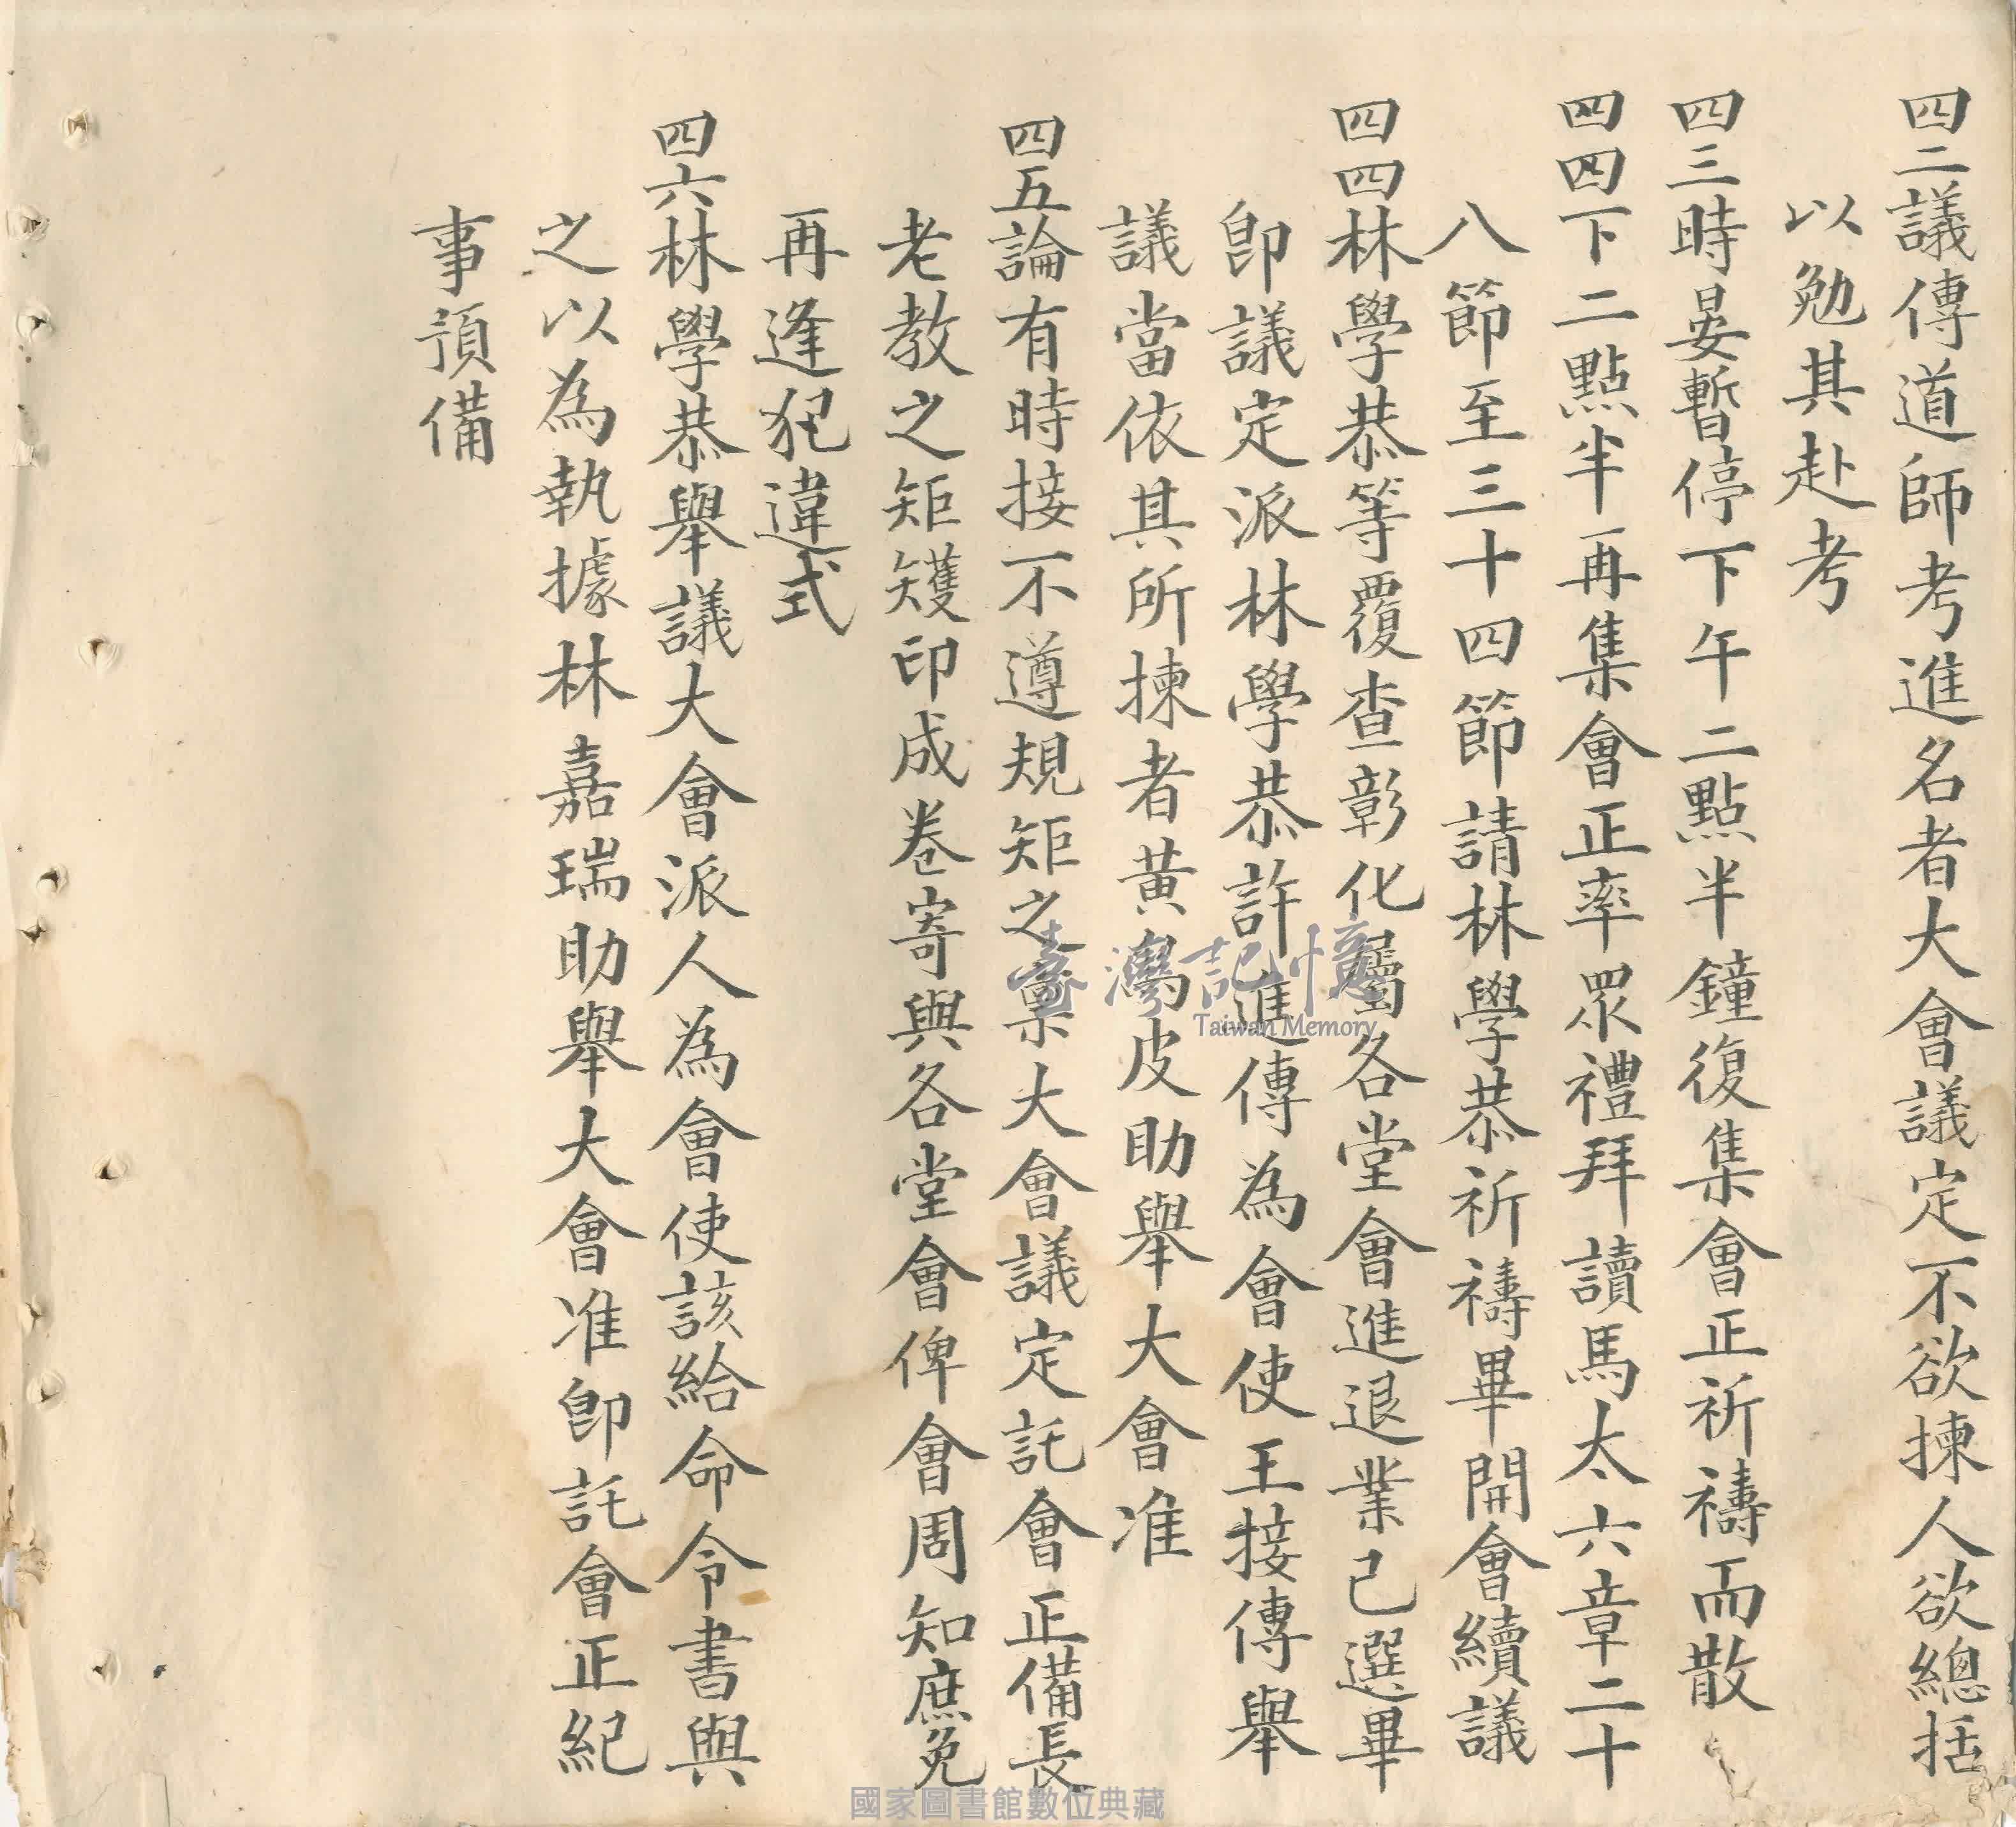 四二議傳道師考進名者大會議定不欲揀人欲總括
以勉其赴考
四三時晏暫停下午二點半鐘復集會正祈禱而散
四四下二點半再集會正率眾禮拜讀馬太六章二十
八節至三十四節請林學恭祈禱畢開會續議
四四林學恭等覆查彰化屬各堂會進退業已選畢
即議定派林學恭許進傳為會使王接傳舉
議當依其所揀者黃為皮助舉大會准
四五論有時接不遵規矩之稟大會議定託會正備長
老教之矩矱印成卷寄與各堂會俾會周知庶免
再逢犯違式
四六林學恭舉議大會派人為會使該給命令書與
之以為執據林嘉瑞助舉大會准即託會正紀
事預備
臺灣記憶
Taiwan Memory
國家圖書館數位典藏